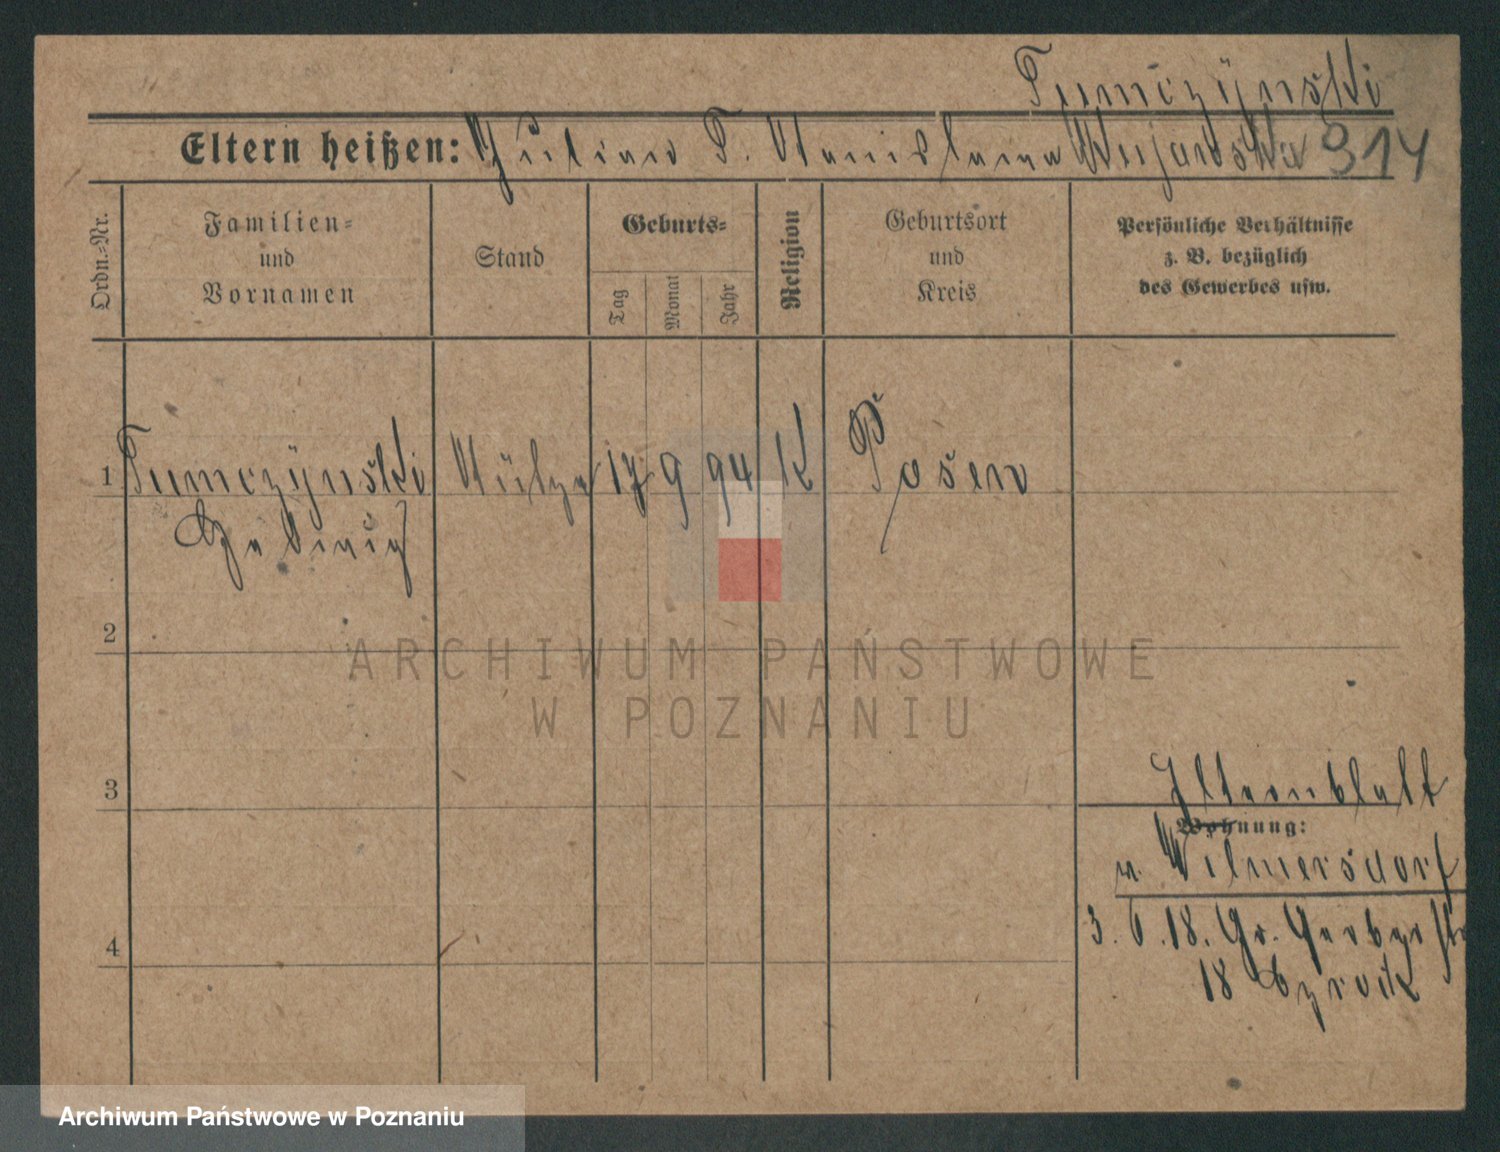 Tumczÿnski
Eltern heißen: Julian T. Stanislawa Kujawska 314
Ordn.-Nr.
Familien- und Vornamen
Stand
Geburts-
Tag
Monat
Jahr
Religion
Geburtsort und Kreis
Persönliche Verhältnisse
z. B. bezüglich
des Gewerbes usw.
1 Tumczÿnski 17 9 94 K Posen
Hedwig
2
3
Elternblatt
Wohnung:
v. Wilmersdorf
3.6.18. Gr. Gerberstr
4
18
ARCHIWUM PAŃSTWOWE
W POZNANIU
Archiwum Państwowe w Poznaniu